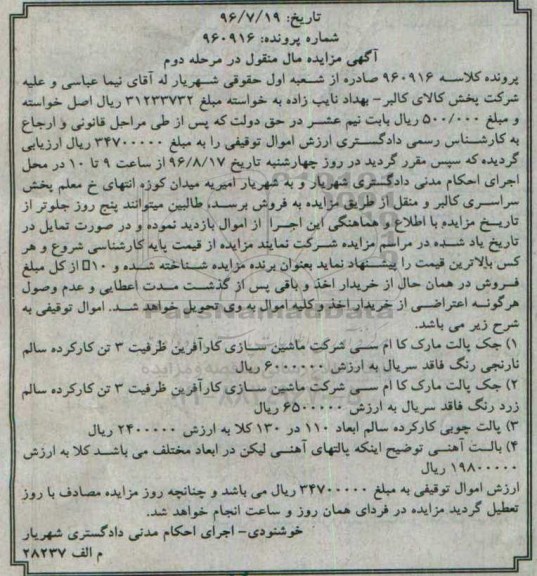 تاریخ: ۹۶/۷/۱۹
شماره پرونده: ۹۶۰۹۱۶
آگهی مزایده مال منقول در مرحله دوم
پرونده کلاسه ۹۶۰۹۱۶ صادره از شعبه اول حقوقی شهریار له آقای نیما عباسی و علیه
شرکت پخش کالای کالبر- بهداد نایب زاده به خواسته مبلغ ۳۱۲۳۳۷۳۲ ریال اصل خواسته
و مبلغ ۵۰۰/۰۰۰ ریال بابت نیم عشر در حق دولت که پس از طی مراحل قانونی و ارجاع
به کارشناس رسمی دادگستری ارزش اموال توقیفی را به مبلغ ۳۴۷۰۰۰۰۰ ریال ارزیابی
گردیده که سپس مقرر گردید در روز چهارشنبه تاریخ ۹۶/۸/۱۷ از ساعت ۹ تا ۱۰ در محل
اجرای احکام مدنی دادگستری شهریار و به شهریار امیریه میدان کوزه انتهای خ معلم پخش
سراسری کالبر و منقل از طریق مزایده به فروش برسد، طالبین میتوانند پنج روز جلوتر از
تاریخ مزایده با اطلاع و هماهنگی این اجرا از اموال بازدید نموده و در صورت تمایل در
تاریخ یاد شده در مراسم مزایده شرکت نمایند مزایده از قیمت پایه کارشناسی شروع و هر
کس بالاترین قیمت را پیشنهاد نماید بعنوان برنده مزایده شناخته شده و ۱۰□ از کل مبلغ
فروش در همان حال از خریدار اخذ و باقی پس از گذشت مدت اعطایی و عدم وصول
هرگونه اعتراضی از خریدار اخذ و کلیه اموال به وی تحویل خواهد شد. اموال توقیفی به
شرح زیر می باشد.
۱) جک پالت مارک کا ام سی شرکت ماشین سازی کارآفرین ظرفیت ۳ تن کارکرده سالم
نارنجی رنگ فاقد سریال به ارزش ۶۰۰۰۰۰۰ ریال
۲) جک پالت مارک کا ام سی شرکت ماشین سازی کارآفرین ظرفیت ۳ تن کارکرده سالم
زرد رنگ فاقد سریال به ارزش ۶۵۰۰۰۰۰ ریال
۳) پالت چوبی کارکرده سالم ابعاد ۱۱۰ در ۱۳۰ کلا به ارزش ۲۴۰۰۰۰۰ ریال
۴) پالت آهنی توضیح اینکه پالتهای آهنی لیکن در ابعاد مختلف می باشد کلا به ارزش
۱۹۸۰۰۰۰۰ ریال
ارزش اموال توقیفی به مبلغ ۳۴۷۰۰۰۰۰ ریال می باشد و چنانچه روز مزایده مصادف با روز
تعطیل گردید مزایده در فردای همان روز و ساعت انجام خواهد شد.
خوشنودی- اجرای احکام مدنی دادگستری شهریار
م الف ۲۸۲۳۷